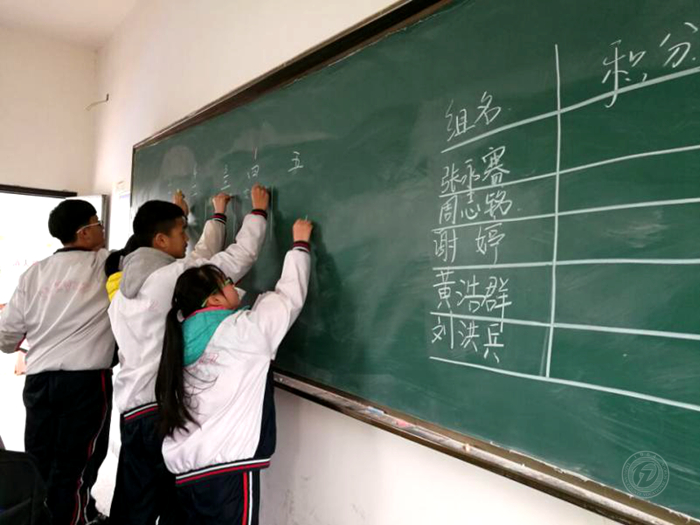 三 四 五
组名 积分
张永睿
周志铭
谢 婷
黄浩群
刘洪兵